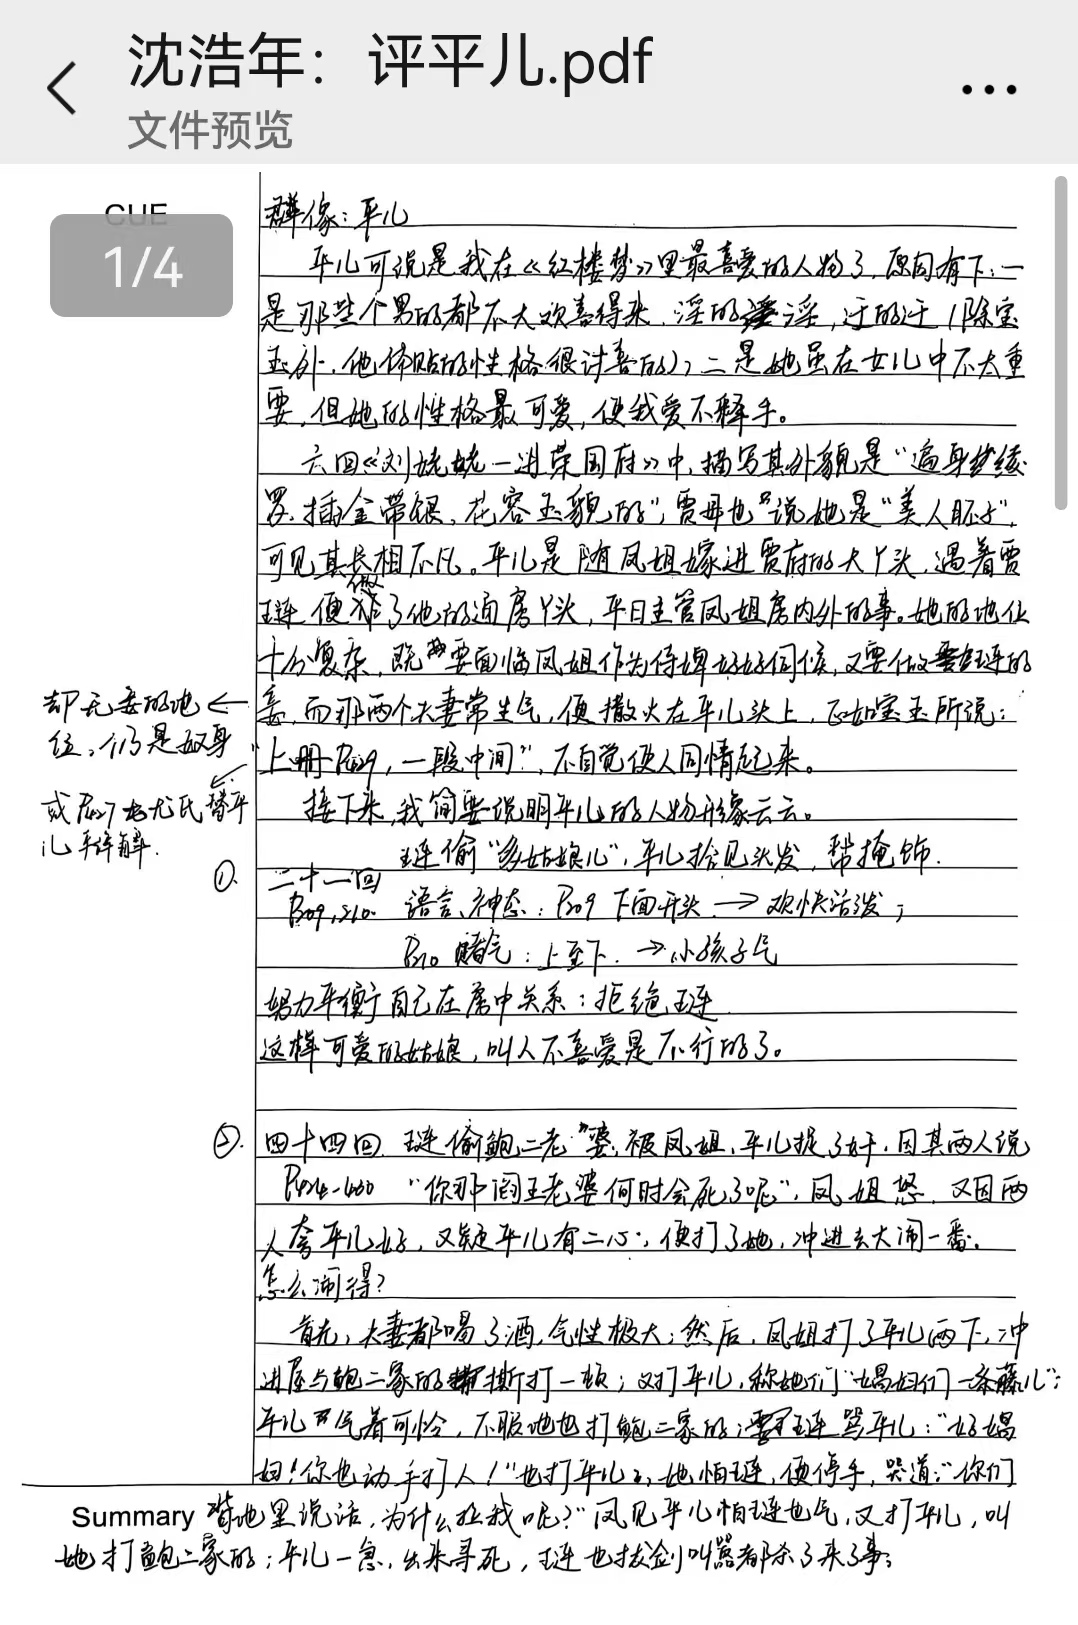 沈浩年：评平儿.pdf
文件预览
CUE
1/4
群像：平儿
平儿可说是我在《红楼梦》里最喜爱的人物了，原因有下：一
是那些个男的都不大欢喜得来，淫的淫，迂的迂（除宝
玉外，他体贴的性格很讨喜的）；二是她虽在女儿中不太重
要，但她的性格最可爱，使我爱不释手。
六回《刘姥姥一进荣国府》中，描写其外貌是“遍身绫
罗，插金带银，花容玉貌的”，贾母也说她是“美人胚子”，
可见其长相不凡。平儿是随凤姐嫁进贾府的大丫头，遇着贾
琏，便做了他的通房丫头，平日主管凤姐房内外的事。她的地位
十分复杂，既要面临凤姐作为侍婢好好伺候，又要做琏的
妾，而那两个夫妻常生气，便撒火在平儿头上，正如宝玉所说：
却无妾的地
位，仍是奴身
“上册P429，一段中间”，不自觉使人同情起来。
或 尤氏替平
儿辩解.
接下来，我简要说明平儿的人物形象云云。
琏偷“多姑娘儿”，平儿拾见头发，帮掩饰.
①. 二十一回
P209,210. 语言、神态：P209 下面开头 → 欢快活泼；
P210 赌气：上至下. → 小孩子气
努力平衡于自己在房中关系：拒绝琏
这样可爱的姑娘，叫人不喜爱是不行的了。
②. 四十四回. 琏偷鲍二老婆，被凤姐、平儿捉了奸，因其两人说
“你那阎王老婆何时会死了呢”，凤姐怒，又因两
人夸平儿好，又疑平儿有二心，便打了她，冲进去大闹一番.
怎么闹得？
首先，夫妻都喝了酒，气性极大；然后，凤姐打了平儿两下，冲
进屋与鲍二家的撕打一顿；又打平儿，称她们“娼妇们一条藤儿”；
平儿气着可怜，不服地也打鲍二家的；琏骂平儿：“好娼
妇！你也动手打人！”也打平儿；她怕琏，便停手，哭道：“你们
Summary 背地里说话，为什么拉我呢？”凤见平儿怕琏也气，又打平儿，叫
她打鲍二家的；平儿一急，出来寻死，琏也拔剑叫嚣都杀了来了事；